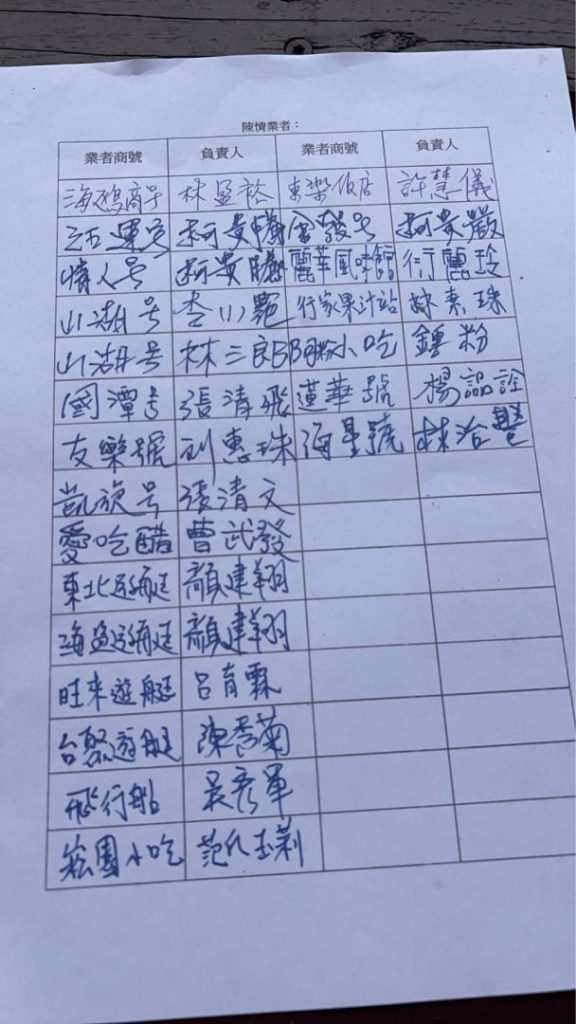 陳情業者：
業者商號 負責人 業者商號 負責人
海鷗商号 林盈裕 東樂飯店 許慧儀
运号 柯貴 号 柯貴嚴
情人号 柯貴 麗華風味館 麗玲
山湖号 李 行家果汁站 林素珠
山湖号 林三郎 小吃 鍾粉
國潭号 張清飛 蓮華號 楊詔詮
友樂號 刘惠珠 海星號 林治
凱旋号 張清文
愛吃醋 曹武發
東北遊艇 顏建翔
海盗遊艇 顏建翔
旺來遊艇 呂育霖
台聚遊艇 陳秀菊
飛行船 吳彥軍
崧園小吃 范仁玉莉